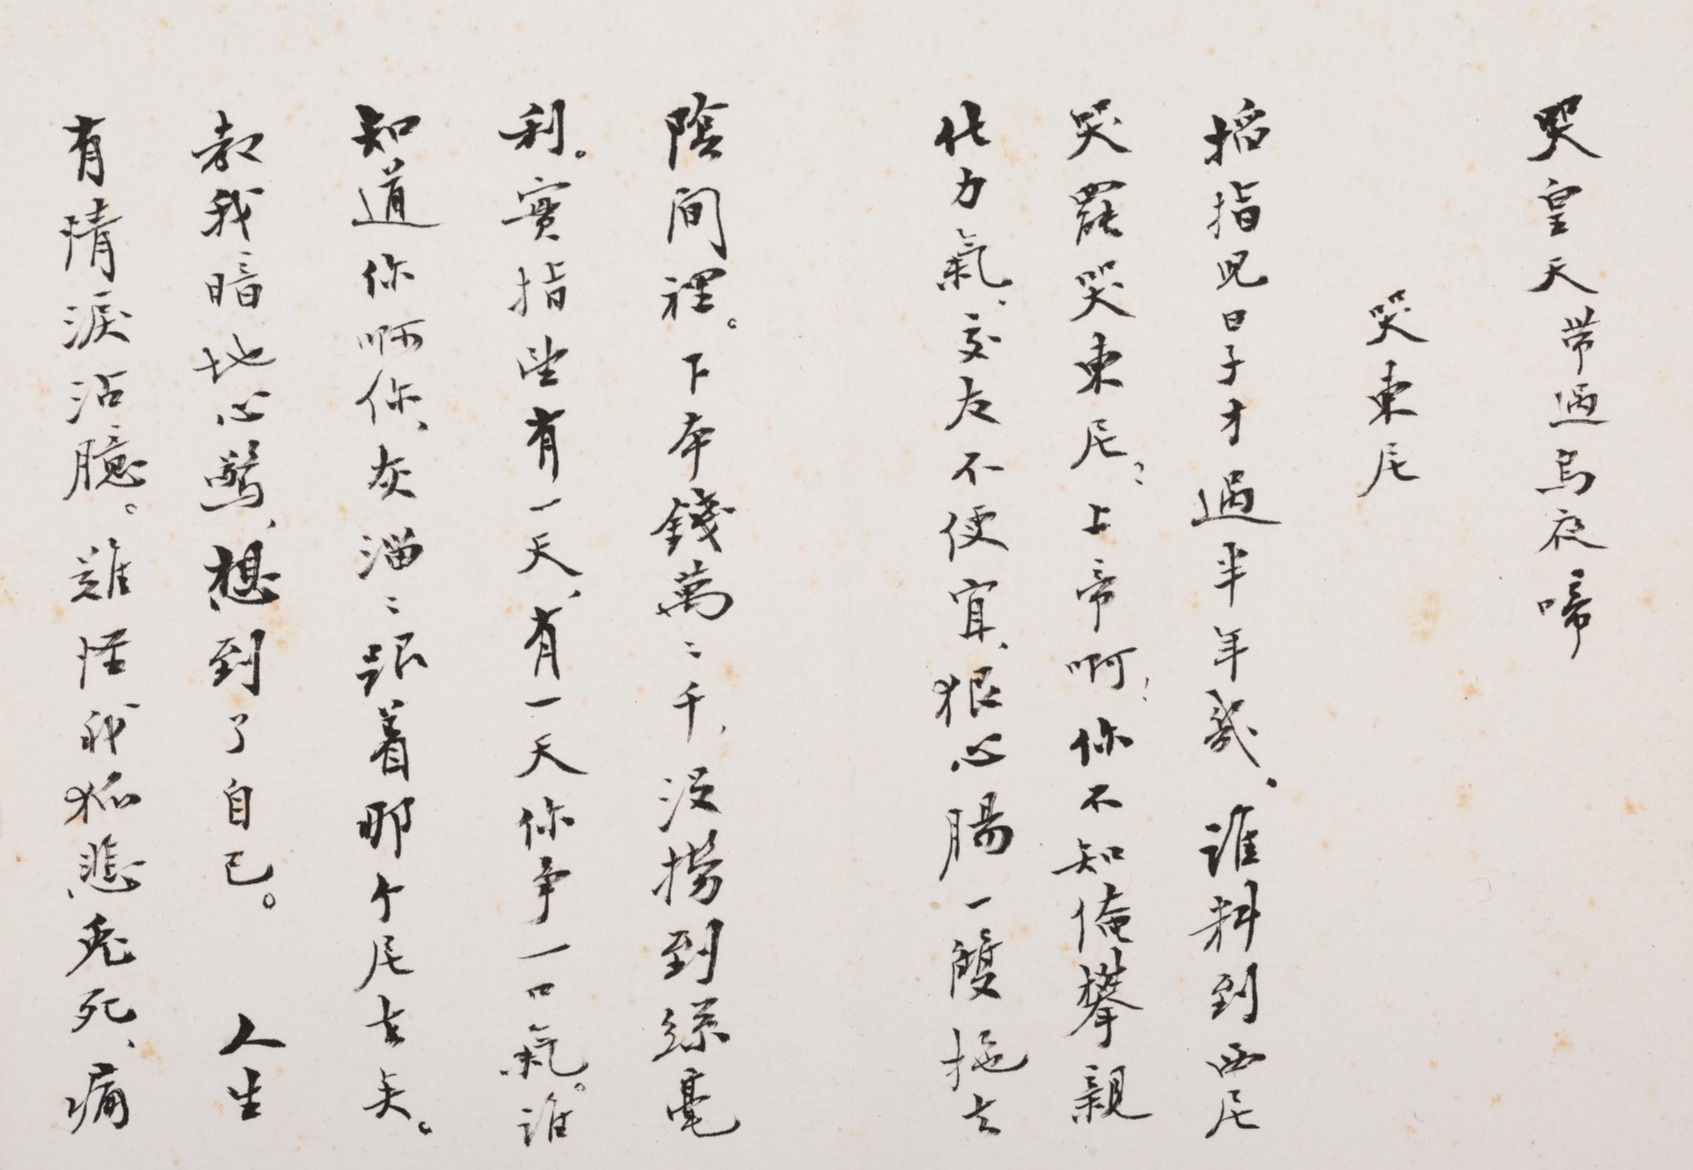 哭皇天 带過烏夜啼
哭東尼
掐指兒日子才過半年幾、誰料到西尼
哭罷哭東尼？上帝啊！你不知俺攀親
花力氣、交友不便宜、狠心腸一雙拖去
陰間裡。下本錢萬〻千，没撈到絲毫
利。實指望有一天、有一天你争一口氣。誰
知道你啊你、灰溜〻跟着那个尼去矣。
教我暗地心驚、想到了自己。 人生
有情淚沾臆。難怪我狐悲兔死、痛